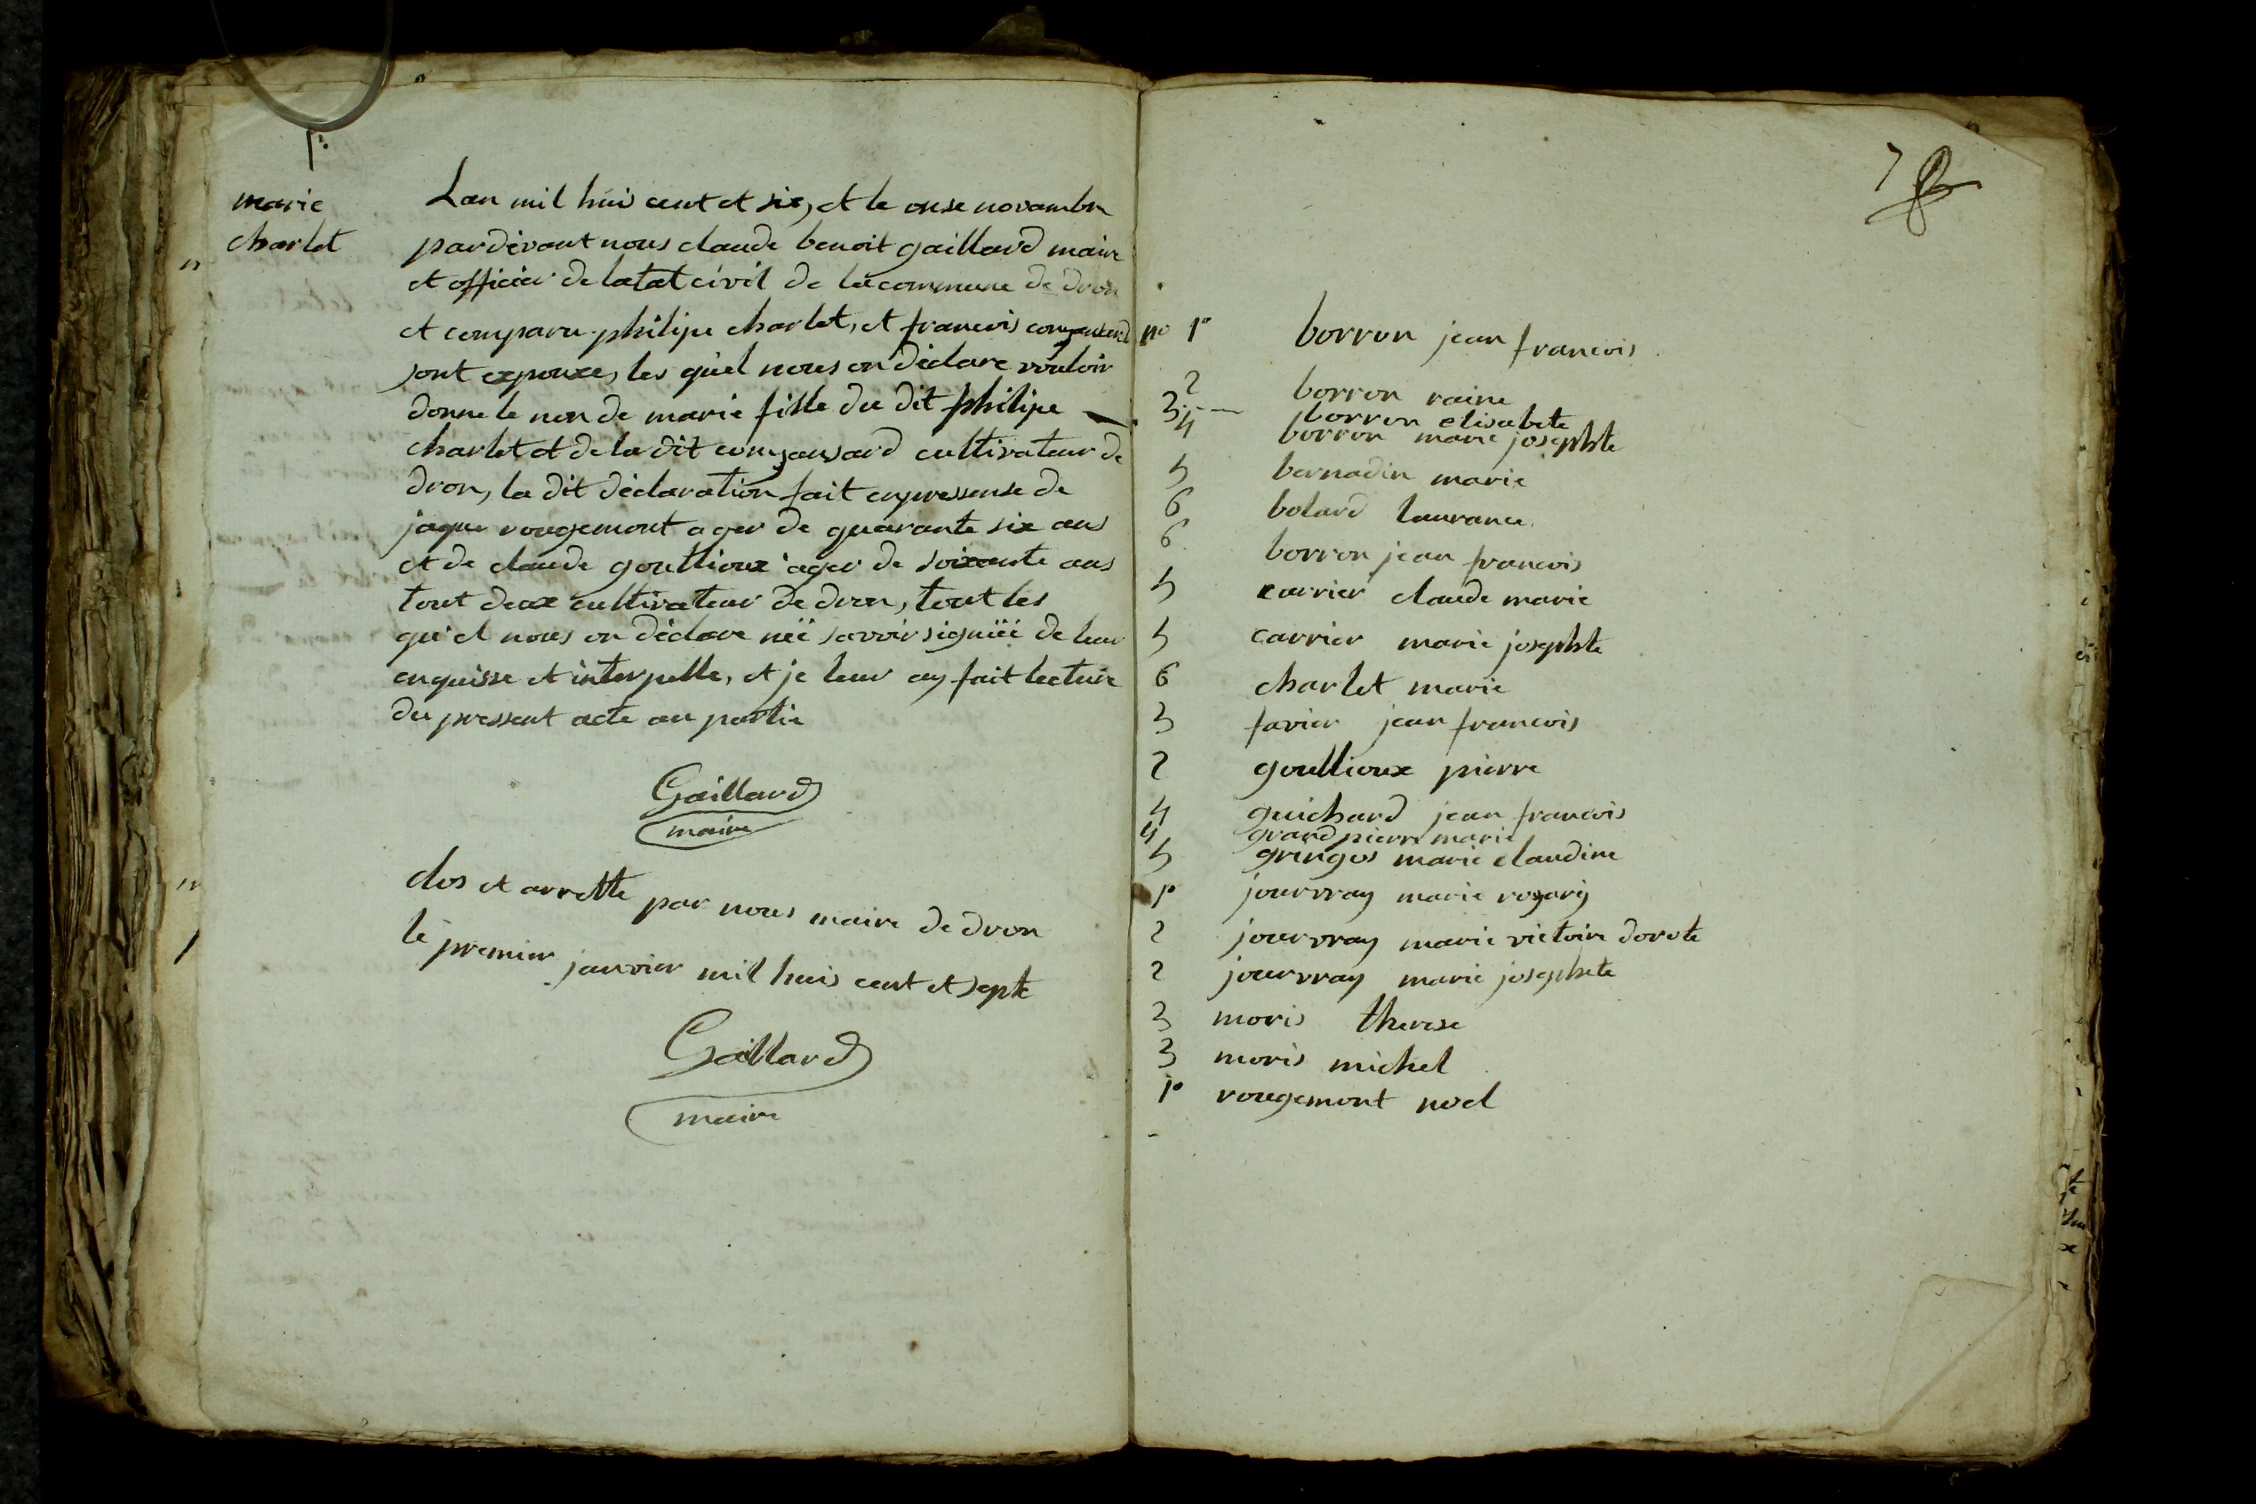 marie
charlet
Lan mil huis cent et six, et le onse novambre
pardevant nous claude benoit gaillard maire
et officier de latat civil de la commune de dron
et comparu philipe charlet, et francois
sont expouxe, les quel nous on déclare vouloir
donne le non de marie fille du dit philipe
charlet et de la dit compansard cultivateur de
dron, la dit déclaration fait enpressense de
jaque rougemont ager de quarante six ans
et de claude goullioux ager de soixante ans
tout deux cultivateur de dron, tout les
quel nous on déclare néé savoir signiéé de leur
enquisse et interpelle, et je leur ay fait lecture
du pressent acte au partie
Gaillard
maire
clos et arrette par nous maire de dron
le premier janvier mil huis cent et septe
Gaillard
maire
7
no 1o borron jean francois
2 borron raine
3 borron elisabete
4 borron marie josephte
5 bernadin marie
6 bolard laurance
6 borron jean francois
5 carrier claude marie
5 carrier marie josephte
6 charlet marie
3 favier jean francois
2 goullioux pierre
4 guichard jean francois
4 grand pierre marie
5 gringos marie claudine
1o jourvray marie rosary
2 jourvray marie victoire dorote
2 jourvray marie josephete
3 moris therese
3 moris michel
1o rougemont noel